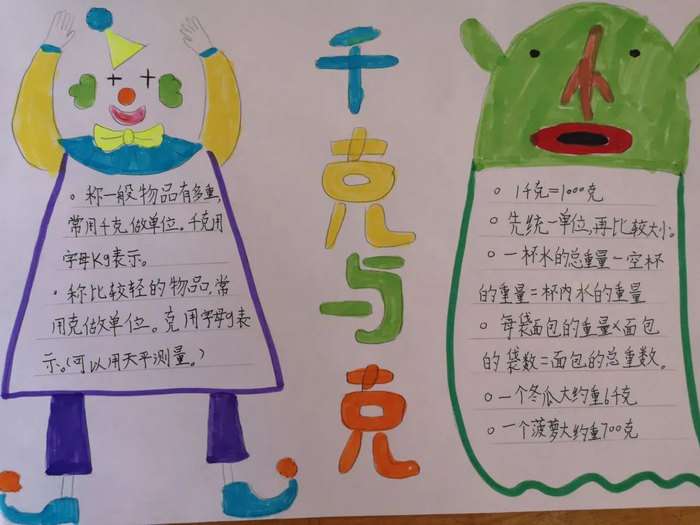 千克与克
。称一般物品有多重,
常用千克做单位。千克用
字母Kg表示。
。称比较轻的物品,常
用克做单位。克用字母g表
示。(可以用天平测量。)
。1千克=1000克
。先统一单位,再比较大小。
。一杯水的总重量-空杯
的重量=杯内水的重量
。每袋面包的重量×面包
的袋数=面包的总重数。
。一个冬瓜大约重6千克
。一个菠萝大约重700克